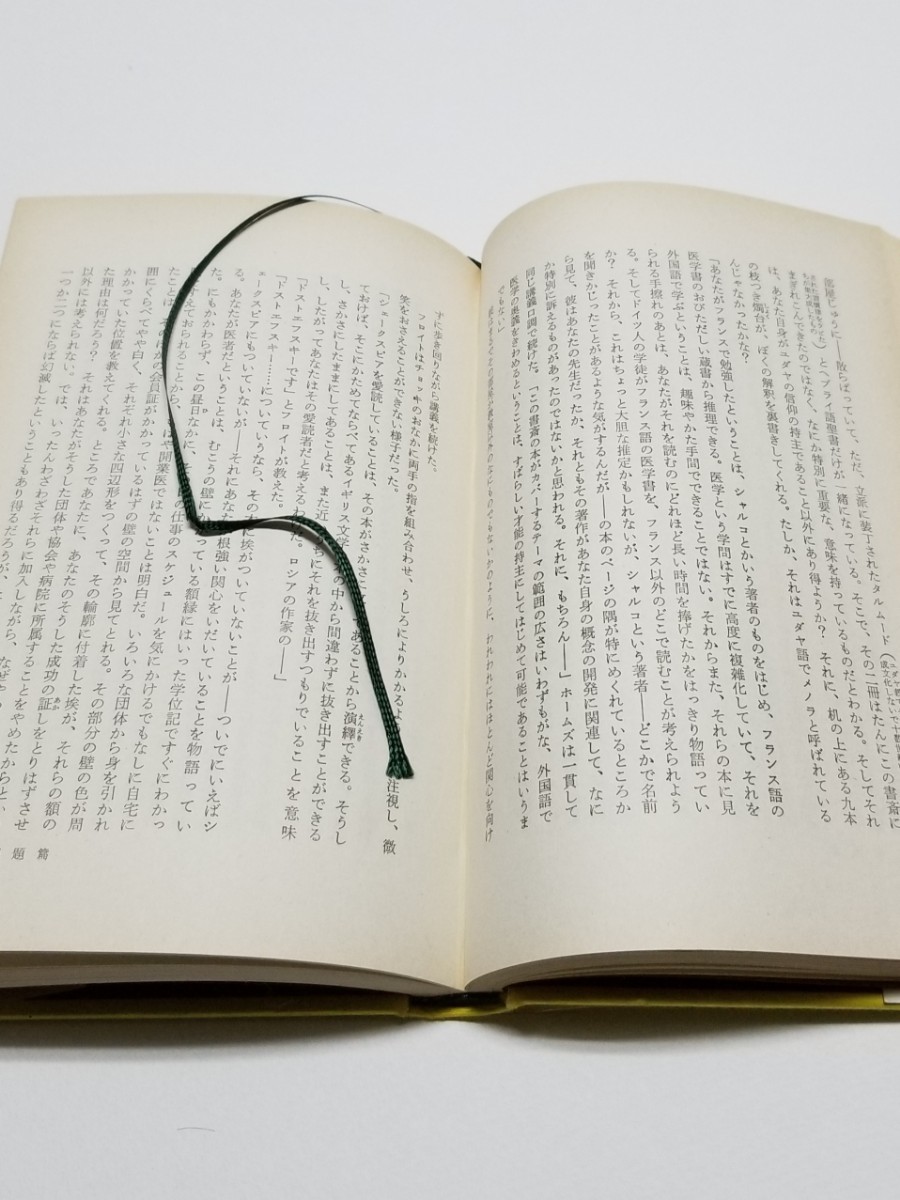 部屋じゅうに――散らばっていて、ただ、立派に装丁されたタルムード(
)とヘブライ語聖書だけが一緒になっている。そこで、その二冊はたんにこの書斎に
まぎれこんできたのではなく、なにか特別に重要な、意味を持っているものだとわかる。そしてそれ
は、あなた自身がユダヤの信仰の持主であること以外にあり得ようか? それに、机の上にある九本
の枝つき燭台が、ぼくの解釈を裏書きしてくれる。たしか、それはユダヤ語でメノラと呼ばれている
んじゃなかったかな?
「あなたがフランスで勉強したということは、シャルコとかいう著者のものをはじめ、フランス語の
医学書のおびただしい蔵書から推理できる。医学という学問はすでに高度に複雑化していて、それを
外国語で学ぶということは、趣味やかた手間でできることではない。それからまた、それらの本に見
られる手擦れのあとは、あなたがそれを読むのにどれほど長い時間を捧げたかをはっきり物語ってい
る。そしてドイツ人の学徒がフランス語の医学書を、フランス以外のどこで読むことが考えられよう
か? それから、これはちょっと大胆な推定かもしれないが、シャルコという著者――どこかで名前
を聞きかじったことがあるような気がするんだが――の本のページの隅が特にめくれているところか
ら見て、彼はあなたの先生だったか、それともその著作があなた自身の概念の開発に関連して、なに
か特別に訴えるものがあったのではないかと思われる。それに、もちろん――」ホームズは一貫して
同じ講義口調で続けた。「この書斎の本がカバーするテーマの範囲の広さはいわずもがな、外国語で
医学の奥義をきわめるということは、すばらしい才能の持主にしてはじめて可能であることはいうま
でもない」
われわれにはほとんど関心を向け
ずに歩き回りながら講義を続けた。
フロイトはチョッキのおなかに両手の指を組み合わせ、うしろによりかかるよ
注視し、微
笑をおさえることができない様子だった。
「シェークスピアを愛読していることは、その本がさかさに
であることから演繹できる。そうし
ておけば、そこにかためてならべてあるイギリス文学
の中から間違わずに抜き出すことができる
し、さかさにしたままにしてあることは、また近
ちにそれを抜き出すつもりでいることを意味
し、したがってあなたはその愛読者だと考えるわ
た。ロシアの作家の――」
「ドストエフスキーです」とフロイトが教えた。
「ドストエフスキー……についていうなら、その
に埃がついていないことが――ついでにいえばシ
ェークスピアにもついていないが――それにあな
根強い関心をいだいていることを物語ってい
る。あなたが医者だということは、むこうの壁にか
っている額縁にはいった学位記ですぐにわかっ
にもかかわらず、この昼日なかに、
の仕事のスケジュールを気にかけるでもなしに自宅に
えておられることから、
はや開業医ではないことは明白だ。いろいろな団体から身を引かれ
たことは、
けの会員証がかかっているはずの壁の空間から見てとれる。その部分の壁の色が周
囲にくらべてやや白く、それぞれ小さな四辺形をつくって、その輪廓に付着した埃が、それらの額の
かかっていた位置を教えてくれる。ところであなたに、あなたのそうした成功の証しをとりはずさせ
た理由は何だろう? それはあなたがそうした団体や協会や病院に所属することをやめたからとい
以外には考えられない。では、いったんわざわざそれらに加入しながら、なぜや
一つか二つにならば幻滅したということもあり得るだろうが、
題篇